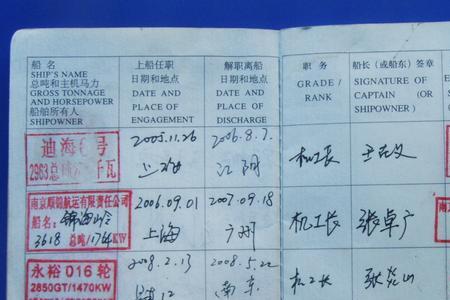 船名
SHIP'S NAME
总吨和主机马力
GROSS TONNAGE
AND HORSEPOWER
船舶所有人
SHIPOWNER
上船任职
日期和地点
DATE AND
PLACE OF
ENGAGEMENT
解职离船
日期和地点
DATE AND
PLACE OF
DISCHARGE
职务
GRADE /
RANK
船长（或船东）签章
SIGNATURE OF
CAPTAIN (OR
SHIPOWNER)
迪海 号
2963总
2005.11.26
上海
2006.8.7.
江阴
机工长
南京顺锦航运有限责任公司
船名：锦海岭
3618总吨/1764KW
2006.09.01
上海
2007.09.18
广州
机工长
张卓广
永裕016轮
2850GT/1470KW
2008.2.13
2008.5.22
南京
机工长